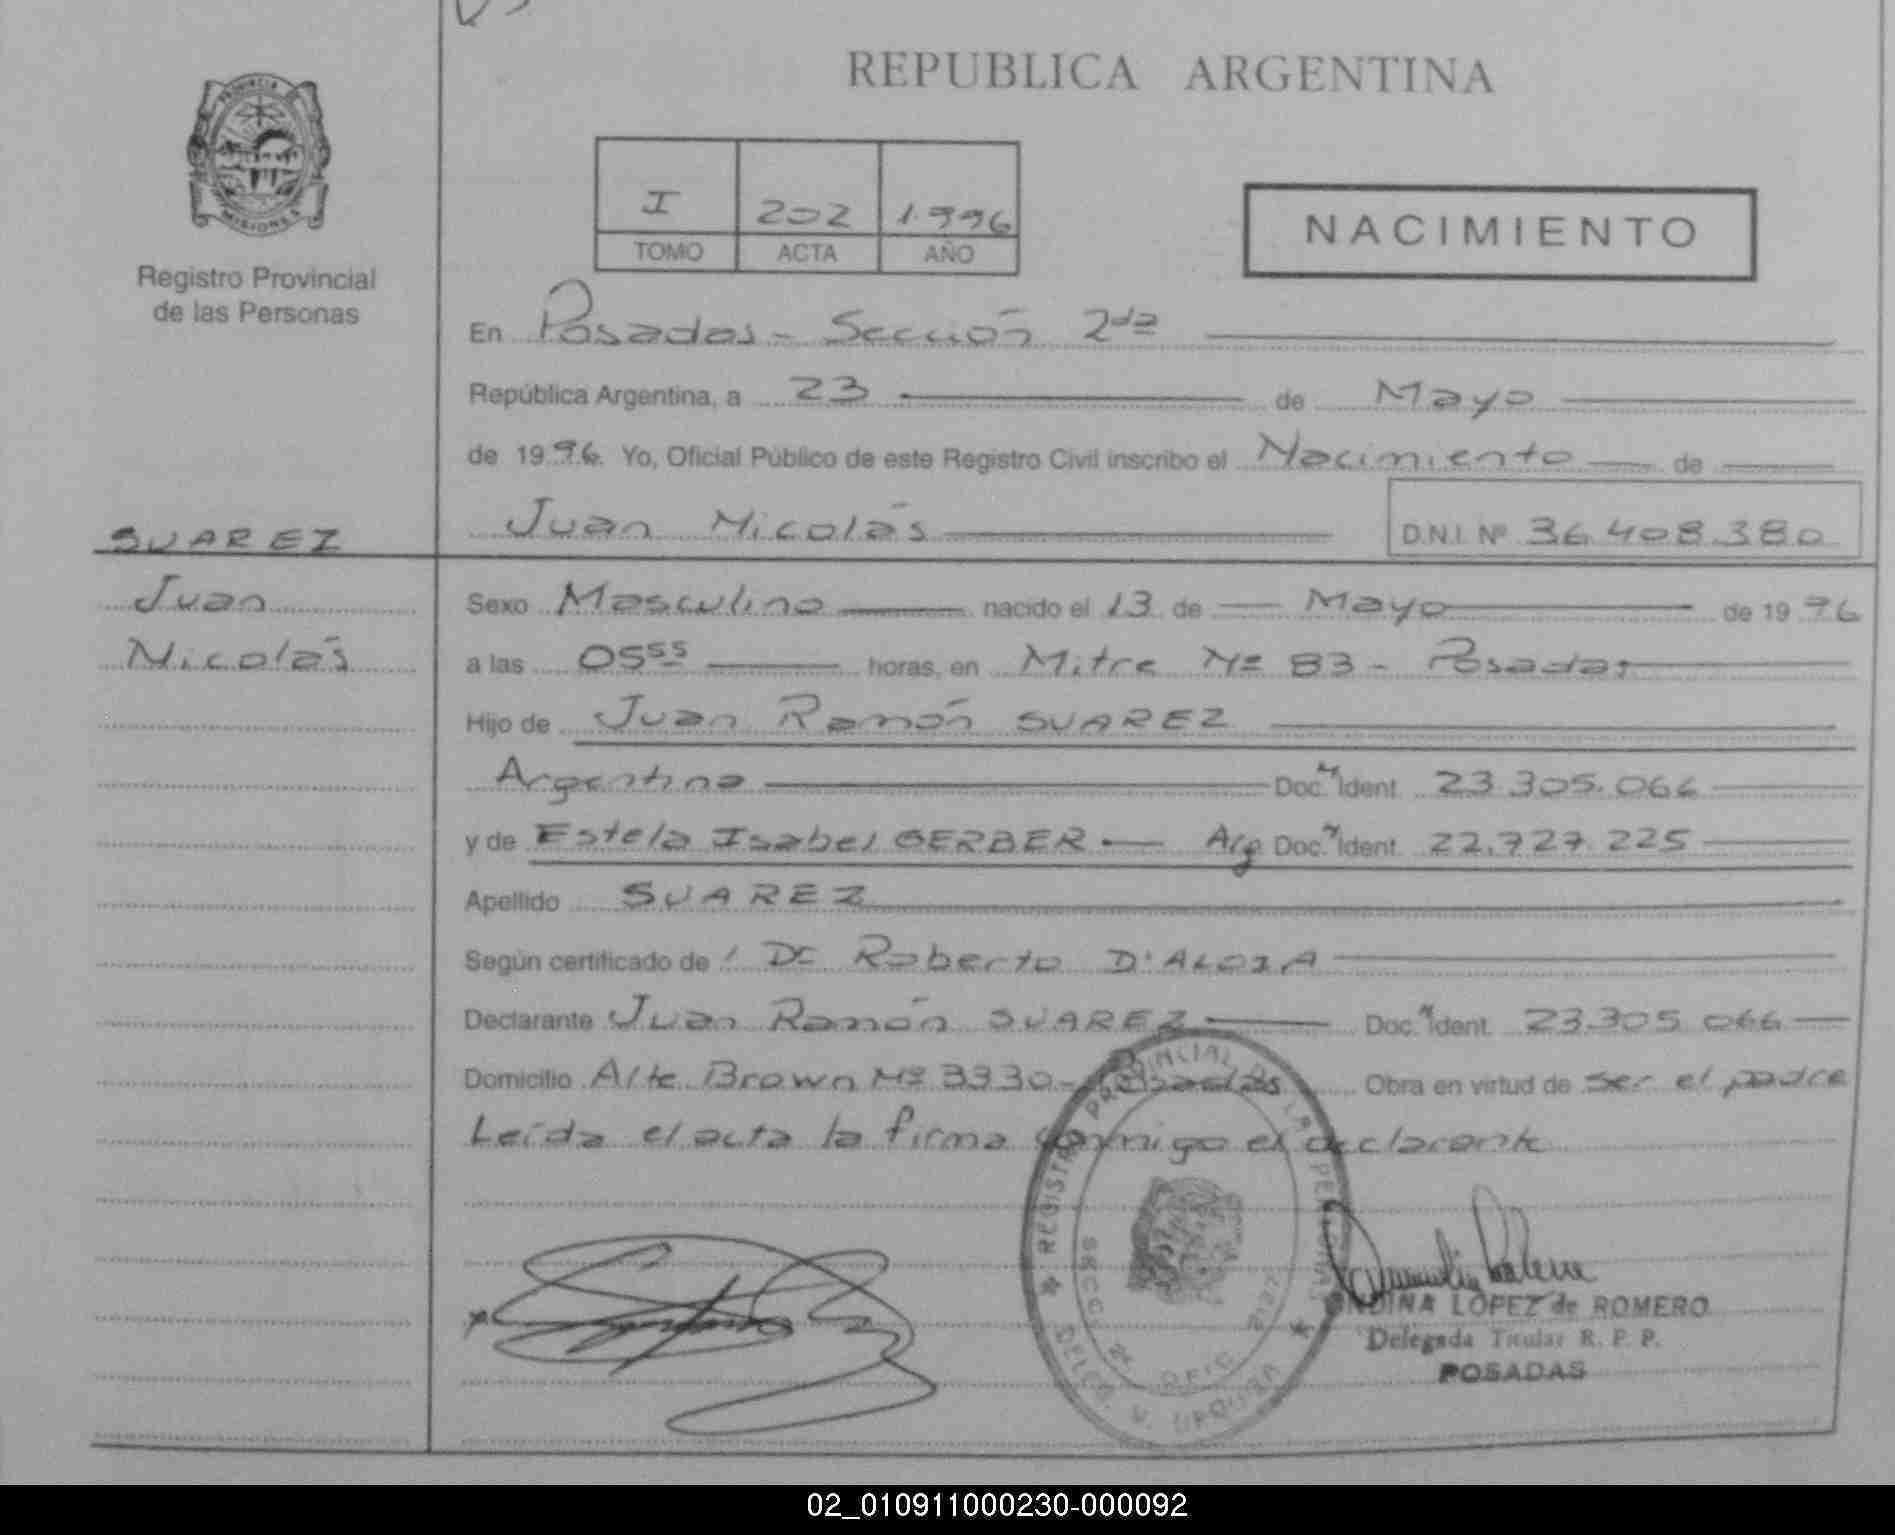 REPUBLICA ARGENTINA
PROVINCIA DE
MISIONES
Registro Provincial
de las Personas
I 202 1.996
TOMO ACTA AÑO
NACIMIENTO
En Posadas - Sección 2da
República Argentina, a 23 de Mayo
de 1996. Yo, Oficial Público de este Registro Civil inscribo el Nacimiento de
Juan Nicolás D.N.I. Nº 36.408.380
SUAREZ
Juan
Nicolás
Sexo Masculino nacido el 13 de Mayo de 1996
a las 05 55 horas, en Mitre Nº 83 - Posadas
Hijo de Juan Ramón SUAREZ
Argentino Doc. N Ident. 23.305.066
y de Estela Isabel GERBER Arg Doc. N Ident. 22.727.225
Apellido SUAREZ
Según certificado de: Dr Roberto D'ALOIA
Declarante Juan Ramón SUAREZ Doc. N Ident. 23.305.066
Domicilio Alte. Brown Nº 3330 - Posadas Obra en virtud de ser el padre
Leída el acta la firma conmigo el declarante
REGISTRO PROVINCIAL DE LAS PERSONAS
SECC. 2ª OFIC. 2127
DELEG. V. URQUIZA
ONDINA LOPEZ de ROMERO
Delegada Titular R. P. P.
POSADAS
02_010911000230-000092